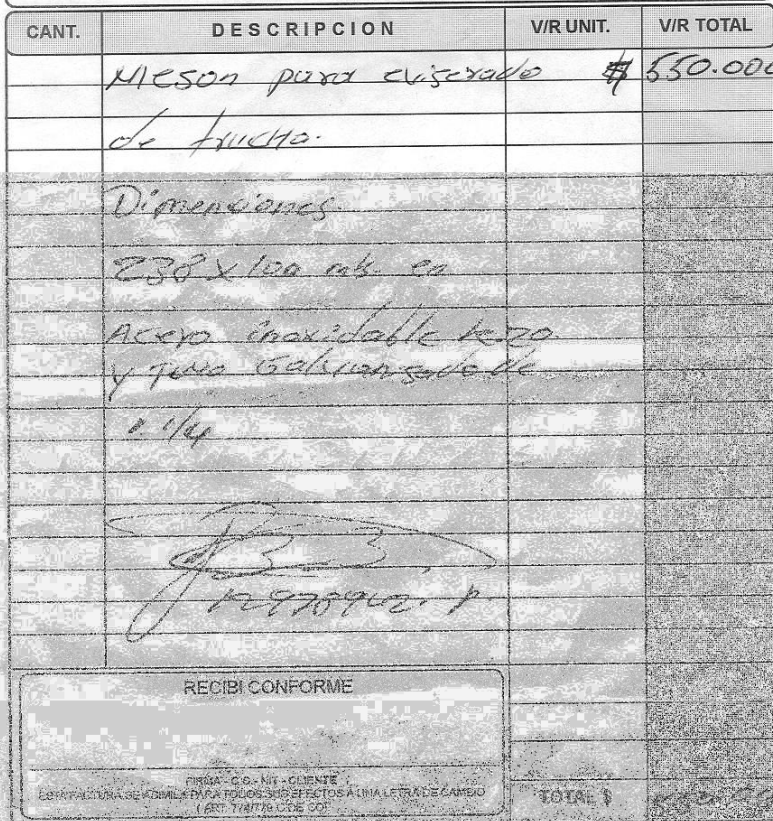 CANT. DESCRIPCION V/R UNIT. V/R TOTAL
Meson para eviscerado $ 550.000
de trucha.
Dimenciones
238 x 100 mts. en
Acero inoxidable
y Tuvo Galvanizado de
1 1/4
12978962. P.
RECIBI CONFORME
FIRMA - C.C. - NIT - CLIENTE
ESTA FACTURA SE ASIMILA PARA TODOS SUS EFECTOS A UNA LETRA DE CAMBIO
(ART. 774/779 C. DE CO)
TOTAL $